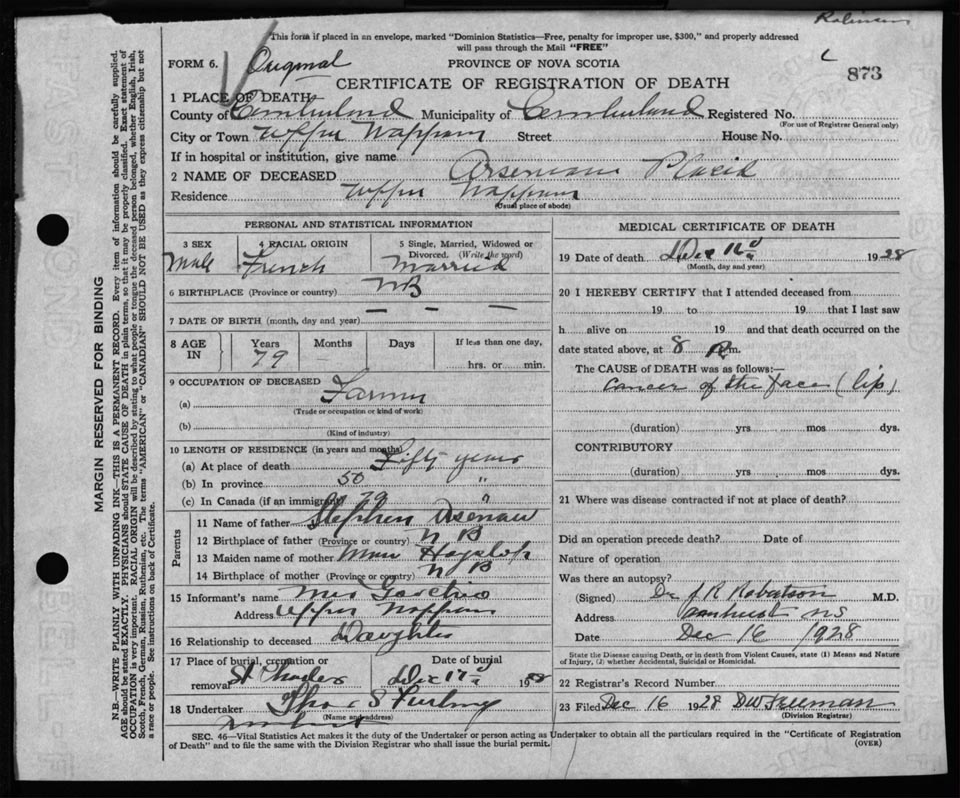 This form if placed in an envelope, marked "Dominion Statistics—Free, penalty for improper use, $300," and properly addressed
will pass through the Mail "FREE"
FORM 6. Original PROVINCE OF NOVA SCOTIA
873
CERTIFICATE OF REGISTRATION OF DEATH
1 PLACE OF DEATH
County of Cumberland Municipality of Cumberland Registered No.
(For use of Registrar General only)
City or Town Upper Nappan Street House No.
If in hospital or institution, give name
2 NAME OF DECEASED Arseneau Placid
Residence Upper Nappan
(Usual place of abode)
PERSONAL AND STATISTICAL INFORMATION
3 SEX 4 RACIAL ORIGIN 5 Single, Married, Widowed or
Divorced. (Write the word)
Male French Married
6 BIRTHPLACE (Province or country) NB
7 DATE OF BIRTH (month, day and year) — — —
8 AGE IN Years Months Days If less than one day,
79 — hrs. or min.
9 OCCUPATION OF DECEASED
(a) Farmer
(Trade or occupation or kind of work)
(b)
(Kind of industry)
10 LENGTH OF RESIDENCE (in years and months)
(a) At place of death Fifty years
(b) In province 50 "
(c) In Canada (if an immigrant) 79 "
Parents
11 Name of father Stephen Arseneau
12 Birthplace of father (Province or country) N B
13 Maiden name of mother Hyslop
14 Birthplace of mother (Province or country) N B
15 Informant's name Mrs
Address Upper Nappan
16 Relationship to deceased Daughter
17 Place of burial, cremation or Date of burial
removal St Charles Dec 17 1928
18 Undertaker Thos S Furlong
(Name and address)
Amherst
MEDICAL CERTIFICATE OF DEATH
19 Date of death Dec 16 1928
(Month, day and year)
20 I HEREBY CERTIFY that I attended deceased from
19 to 19 that I last saw
h alive on 19 and that death occurred on the
date stated above, at 8 m.
The CAUSE OF DEATH was as follows:
Cancer of the face (lip)
(duration) yrs mos dys.
CONTRIBUTORY
(duration) yrs. mos dys.
21 Where was disease contracted if not at place of death?
Did an operation precede death? Date of
Nature of operation
Was there an autopsy?
(Signed) Dr J.R Robertson M.D.
Address Amherst NS
Date Dec 16 1928
State the Disease causing Death, or in death from Violent Causes, state (1) Means and Nature
of Injury, (2) whether Accidental, Suicidal or Homicidal.
22 Registrar's Record Number
23 Filed Dec 16 1928 DW Freeman
(Division Registrar)
SEC. 46—Vital Statistics Act makes it the duty of the Undertaker or person acting as Undertaker to obtain all the particulars required in the "Certificate of Registration
of Death" and to file the same with the Division Registrar who shall issue the burial permit. (OVER)
MARGIN RESERVED FOR BINDING
N.B.—WRITE PLAINLY WITH UNFADING INK—THIS IS A PERMANENT RECORD. Every item of information should be carefully supplied.
AGE should be stated EXACTLY. PHYSICIANS should STATE CAUSE OF DEATH in plain terms, so that it may be properly classified. Exact statement of
OCCUPATION is very important. RACIAL ORIGIN will be described by stating to what people or tongue the deceased person belonged, whether English, Irish,
Scotch, French, German, Russian, Ruthenian, etc. The terms "AMERICAN" or "CANADIAN" SHOULD NOT BE USED as they express citizenship but not
a race or people. See instructions on back of Certificate.